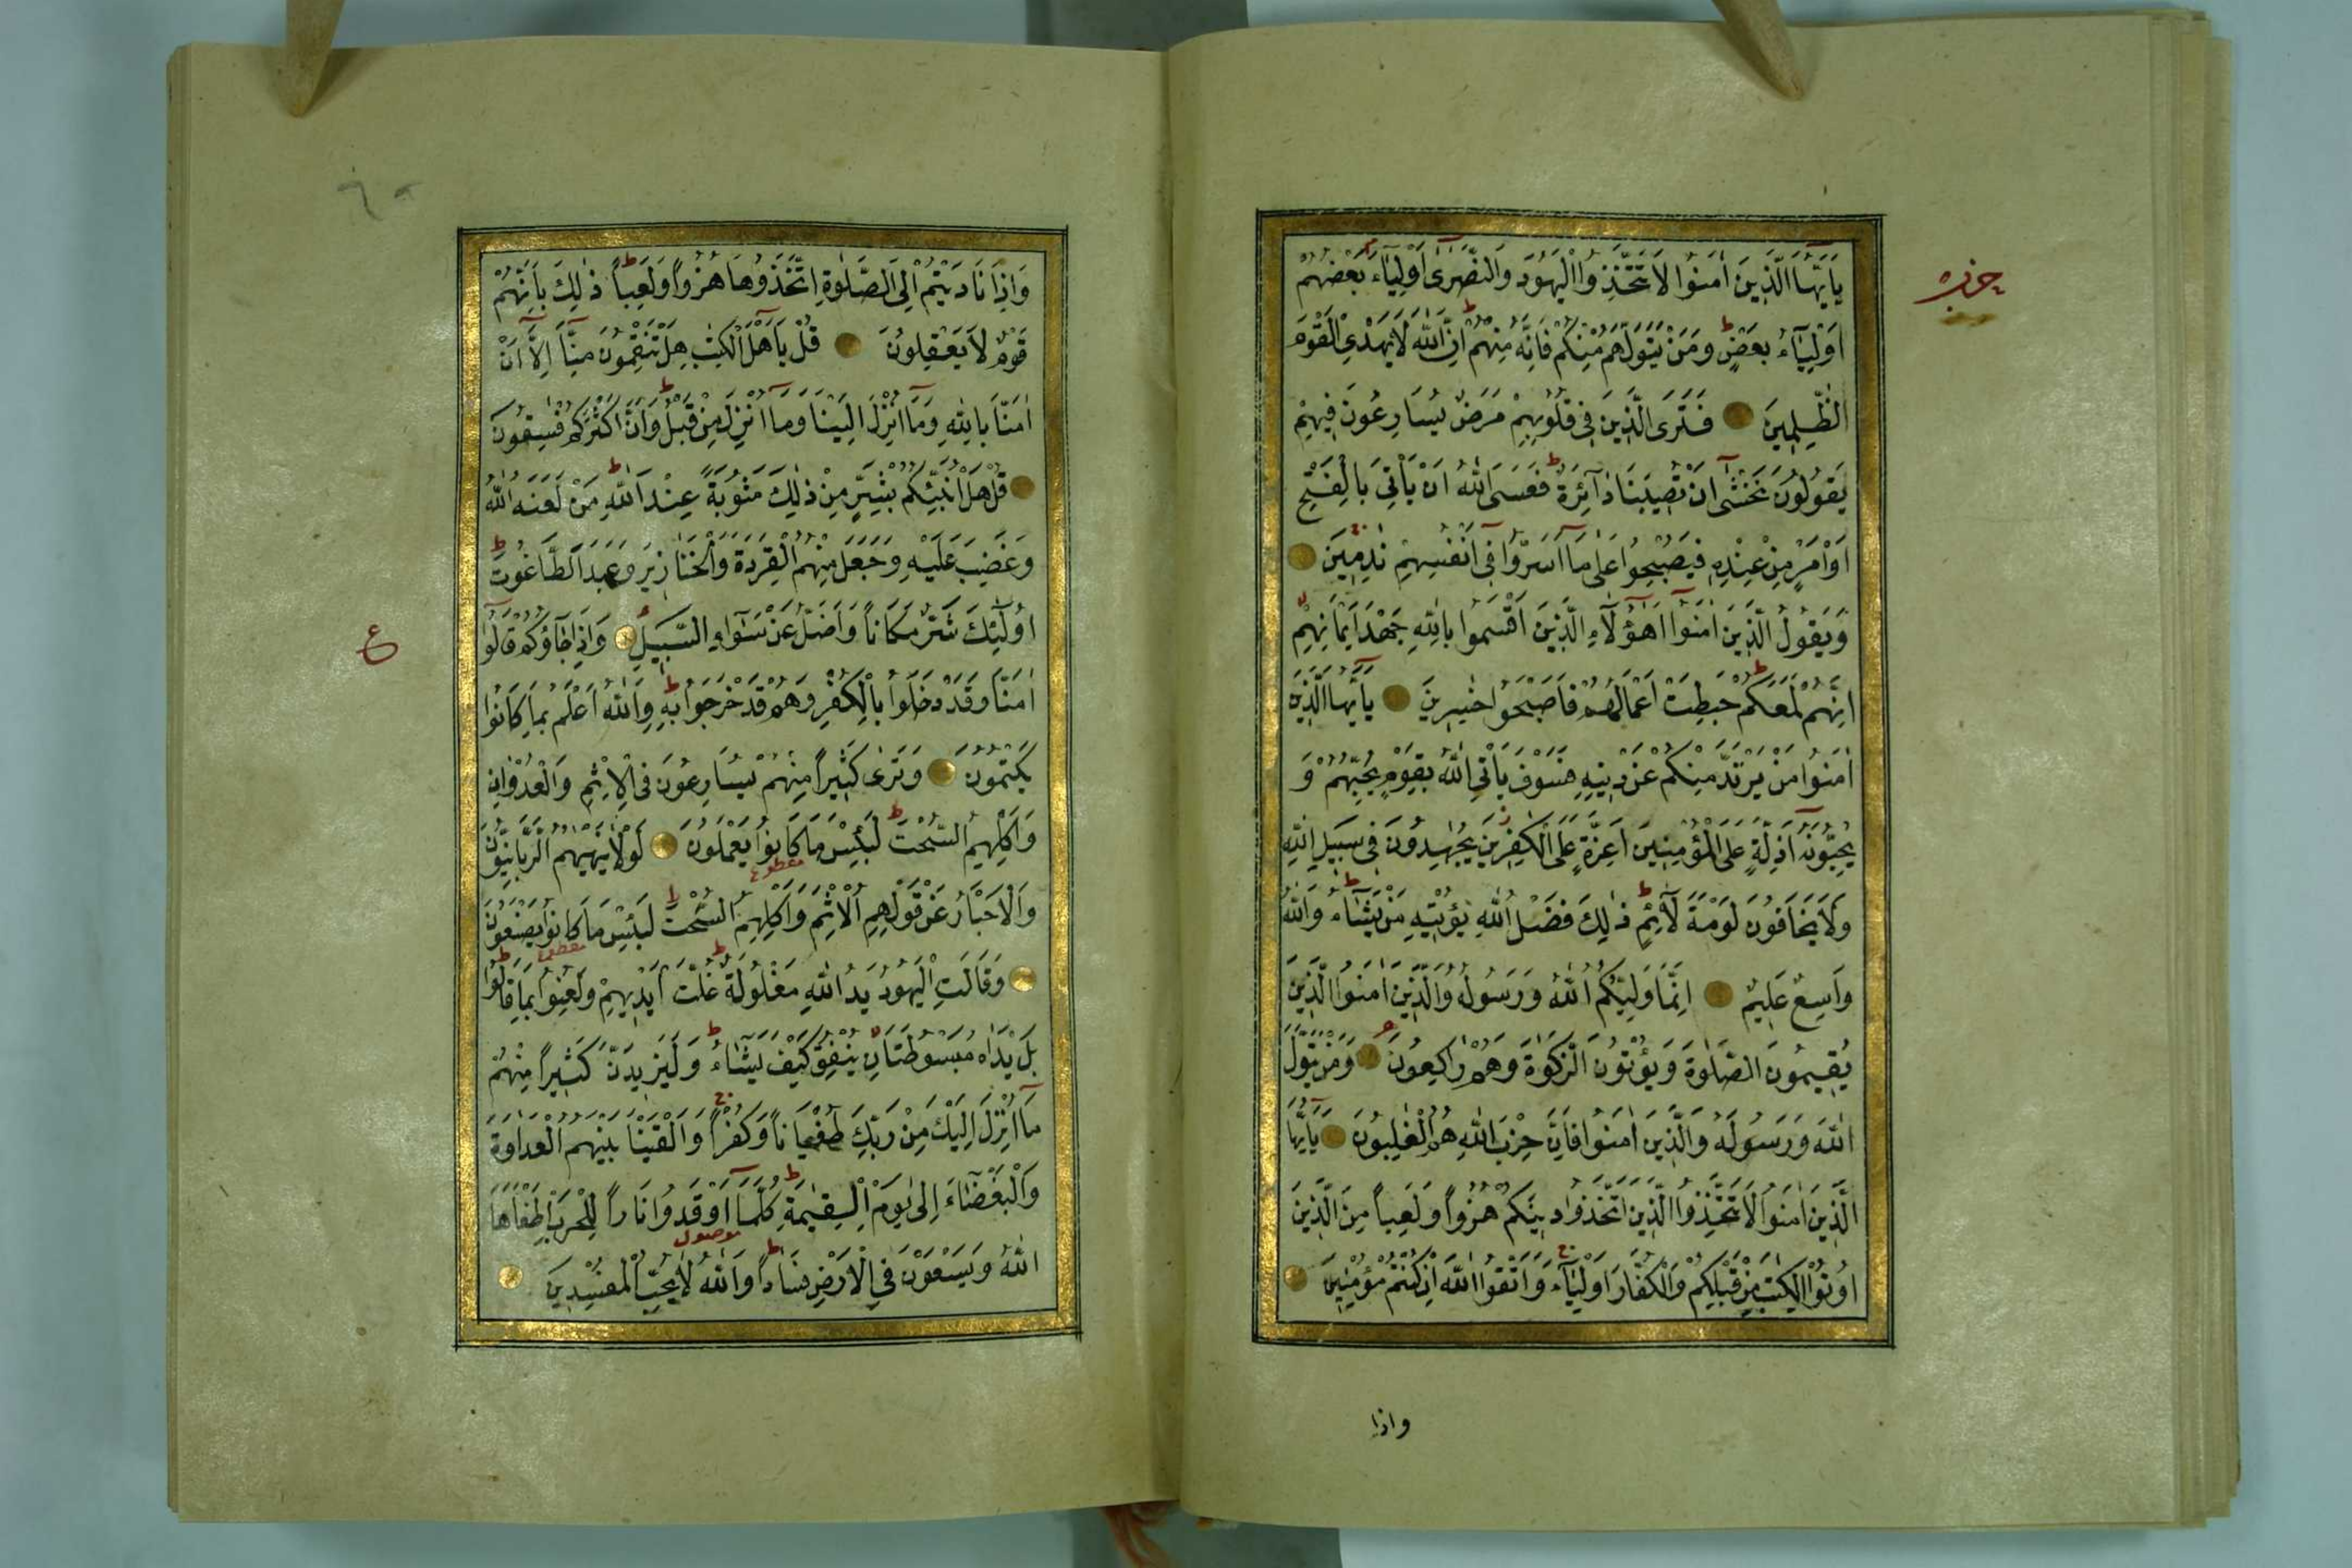 حزب
يَٓا اَيُّهَا الَّذ۪ينَ اٰمَنُوا لَا تَتَّخِذُوا الْيَهُودَ وَالنَّصٰرٰٓى اَوْلِيَٓاءَ بَعْضُهُمْ
اَوْلِيَٓاءُ بَعْضٍ وَمَنْ يَتَوَلَّهُمْ مِنْكُمْ فَاِنَّهُ مِنْهُمْ اِنَّ اللّٰهَ لَا يَهْدِي الْقَوْمَ
الظّٰلِم۪ينَ فَتَرَى الَّذ۪ينَ ف۪ي قُلُوبِهِمْ مَرَضٌ يُسَارِعُونَ ف۪يهِمْ
يَقُولُونَ نَخْشٰٓى اَنْ تُص۪يبَنَا دَٓائِرَةٌ فَعَسَى اللّٰهُ اَنْ يَأْتِيَ بِالْفَتْحِ
اَوْ اَمْرٍ مِنْ عِنْدِه۪ فَيُصْبِحُوا عَلٰى مَٓا اَسَرُّوا ف۪ٓي اَنْفُسِهِمْ نٰدِم۪ينَ
وَيَقُولُ الَّذ۪ينَ اٰمَنُٓوا اَهٰٓؤُلَٓاءِ الَّذ۪ينَ اَقْسَمُوا بِاللّٰهِ جَهْدَ اَيْمَانِهِمْ
اِنَّهُمْ لَمَعَكُمْ حَبِطَتْ اَعْمَالُهُمْ فَاَصْبَحُوا خٰسِر۪ينَ يَٓا اَيُّهَا الَّذ۪ينَ
اٰمَنُوا مَنْ يَرْتَدَّ مِنْكُمْ عَنْ د۪ينِه۪ فَسَوْفَ يَأْتِي اللّٰهُ بِقَوْمٍ يُحِبُّهُمْ وَ
يُحِبُّونَهُٓ اَذِلَّةٍ عَلَى الْمُؤْمِن۪ينَ اَعِزَّةٍ عَلَى الْكٰفِر۪ينَ يُجٰهِدُونَ ف۪ي سَب۪يلِ اللّٰهِ
وَلَا يَخَافُونَ لَوْمَةَ لَٓائِمٍ ذٰلِكَ فَضْلُ اللّٰهِ يُؤْت۪يهِ مَنْ يَشَٓاءُ وَاللّٰهُ
وَاسِعٌ عَل۪يمٌ اِنَّمَا وَلِيُّكُمُ اللّٰهُ وَرَسُولُهُ وَالَّذ۪ينَ اٰمَنُوا الَّذ۪ينَ
يُق۪يمُونَ الصَّلٰوةَ وَيُؤْتُونَ الزَّكٰوةَ وَهُمْ رَاكِعُونَ وَمَنْ يَتَوَلَّ
اللّٰهَ وَرَسُولَهُ وَالَّذ۪ينَ اٰمَنُوا فَاِنَّ حِزْبَ اللّٰهِ هُمُ الْغٰلِبُونَ يَٓا اَيُّهَا
الَّذ۪ينَ اٰمَنُوا لَا تَتَّخِذُوا الَّذ۪ينَ اتَّخَذُوا د۪ينَكُمْ هُزُواً وَلَعِباً مِنَ الَّذ۪ينَ
اُو۫تُوا الْكِتٰبَ مِنْ قَبْلِكُمْ وَالْكُفَّارَ اَوْلِيَٓاءَ وَاتَّقُوا اللّٰهَ اِنْ كُنْتُمْ مُؤْمِن۪ينَ
واذا
وَاِذَا نَادَيْتُمْ اِلَى الصَّلٰوةِ اتَّخَذُوهَا هُزُواً وَلَعِباً ذٰلِكَ بِاَنَّهُمْ
قَوْمٌ لَا يَعْقِلُونَ قُلْ يَٓا اَهْلَ الْكِتٰبِ هَلْ تَنْقِمُونَ مِنَّٓا اِلَّٓا اَنْ
اٰمَنَّا بِاللّٰهِ وَمَٓا اُنْزِلَ اِلَيْنَا وَمَٓا اُنْزِلَ مِنْ قَبْلُ وَاَنَّ اَكْثَرَكُمْ فٰسِقُونَ
قُلْ هَلْ اُنَبِّئُكُمْ بِشَرٍّ مِنْ ذٰلِكَ مَثُوبَةً عِنْدَ اللّٰهِ مَنْ لَعَنَهُ اللّٰهُ
وَغَضِبَ عَلَيْهِ وَجَعَلَ مِنْهُمُ الْقِرَدَةَ وَالْخَنَاز۪يرَ وَعَبَدَ الطَّاغُوتَ
اُو۬لٰٓئِكَ شَرٌّ مَكَاناً وَاَضَلُّ عَنْ سَوَٓاءِ السَّب۪يلِ وَاِذَا جَٓاؤُ۫كُمْ قَالُٓوا
ع
اٰمَنَّا وَقَدْ دَخَلُوا بِالْكُفْرِ وَهُمْ قَدْ خَرَجُوا بِه۪ وَاللّٰهُ اَعْلَمُ بِمَا كَانُوا
يَكْتُمُونَ وَتَرٰى كَث۪يراً مِنْهُمْ يُسَارِعُونَ فِي الْاِثْمِ وَالْعُدْوَانِ
وَاَكْلِهِمُ السُّحْتَ لَبِئْسَ مَا كَانُوا يَعْمَلُونَ لَوْلَا يَنْهٰيهُمُ الرَّبَّانِيُّونَ
مقطوع
وَالْاَحْبَارُ عَنْ قَوْلِهِمُ الْاِثْمَ وَاَكْلِهِمُ السُّحْتَ لَبِئْسَ مَا كَانُوا يَصْنَعُونَ
مقطوع
وَقَالَتِ الْيَهُودُ يَدُ اللّٰهِ مَغْلُولَةٌ غُلَّتْ اَيْد۪يهِمْ وَلُعِنُوا بِمَا قَالُوا
بَلْ يَدَاهُ مَبْسُوطَتَانِ يُنْفِقُ كَيْفَ يَشَٓاءُ وَلَيَز۪يدَنَّ كَث۪يراً مِنْهُمْ
مَٓا اُنْزِلَ اِلَيْكَ مِنْ رَبِّكَ طُغْيَاناً وَكُفْراً وَاَلْقَيْنَا بَيْنَهُمُ الْعَدَاوَةَ
وَالْبَغْضَٓاءَ اِلٰى يَوْمِ الْقِيٰمَةِ كُلَّمَٓا اَوْقَدُوا نَاراً لِلْحَرْبِ اَطْفَاَهَا
موصول
اللّٰهُ وَيَسْعَوْنَ فِي الْاَرْضِ فَسَاداً وَاللّٰهُ لَا يُحِبُّ الْمُفْسِد۪ينَ